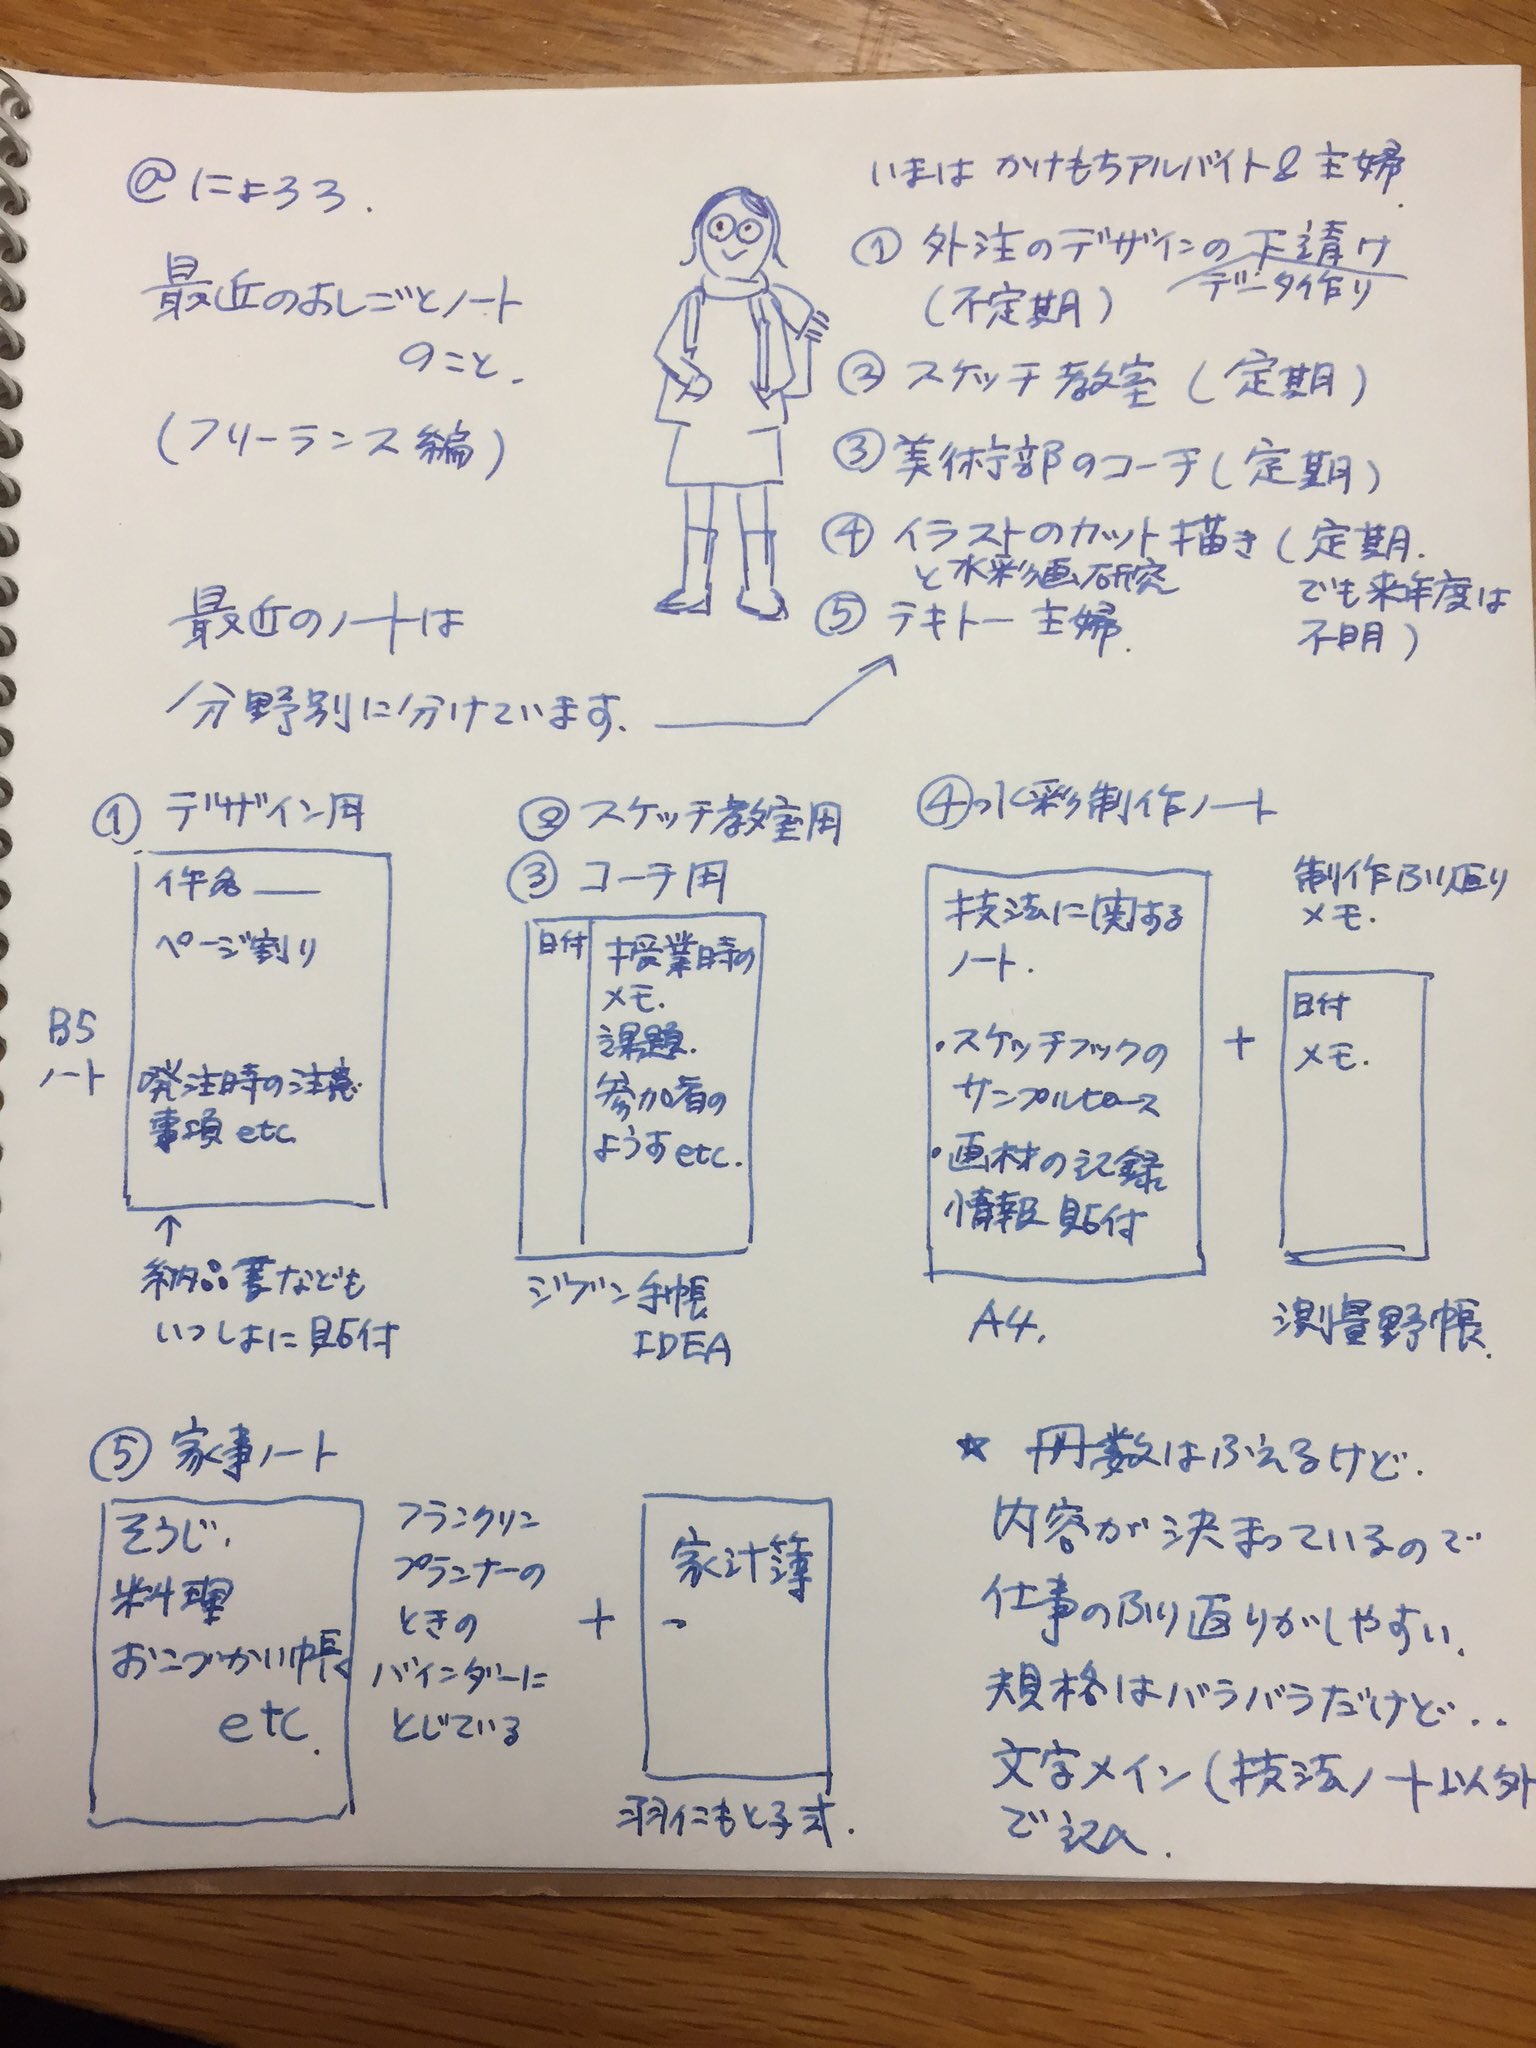 @にょろろ.
最近のおしごとノート
のこと.
(フリーランス編)
いまは かけもちアルバイト&主婦.
① 外注のデザインの下請け
データ作り
(不定期)
② スケッチ教室(定期)
③ 美術部のコーチ(定期)
④ イラストのカット描き(定期.
と水彩画研究
でも来年度は
不明)
⑤ テキトー主婦.
最近のノートは
分野別に分けています.
① デザイン用
件名
ページ割り
発注時の注意
事項etc.
B5
ノート
↑
納品書なども
いっしょに貼付
② スケッチ教室用
③ コーチ用
日付
授業時の
メモ.
課題.
参加者の
ようすetc.
ジブン手帳
IDEA
④水彩制作ノート
技法に関する
ノート.
・スケッチブックの
サンプルピース
・画材の記録
情報貼付
A4.
+
制作ふり返り
メモ.
日付
メモ.
測量野帳.
⑤ 家事ノート
そうじ.
料理
おこづかい帳
etc.
フランクリン
プランナーの
ときの
バインダーに
とじている
+
家計簿
羽仁もと子式.
★ 冊数はふえるけど.
内容が決まっているので
仕事のふり返りがしやすい.
規格はバラバラだけど..
文字メイン(技法ノート以外
で記入.